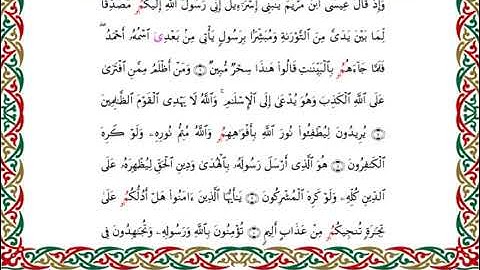 وَإِذْ قَالَ عِيسَى ٱبْنُ مَرْيَمَ يَٰبَنِىٓ إِسْرَٰٓءِيلَ إِنِّى رَسُولُ ٱللَّهِ إِلَيْكُمُ مُّصَدِّقًا
لِّمَا بَيْنَ يَدَىَّ مِنَ ٱلتَّوْرَىٰةِ وَمُبَشِّرًۢا بِرَسُولٍ يَأْتِى مِنۢ بَعْدِىَ ٱسْمُهُۥٓ أَحْمَدُ ۖ
فَلَمَّا جَآءَهُمُ بِٱلْبَيِّنَٰتِ قَالُوا۟ هَٰذَا سِحْرٌ مُّبِينٌ وَمَنْ أَظْلَمُ مِمَّنِ ٱفْتَرَىٰ
عَلَى ٱللَّهِ ٱلْكَذِبَ وَهُوَ يُدْعَىٰٓ إِلَى ٱلْإِسْلَٰمِ ۚ وَٱللَّهُ لَا يَهْدِى ٱلْقَوْمَ ٱلظَّٰلِمِينَ
يُرِيدُونَ لِيُطْفِـُٔوا۟ نُورَ ٱللَّهِ بِأَفْوَٰهِهِمُ وَٱللَّهُ مُتِمُّ نُورِهِۦ وَلَوْ كَرِهَ
ٱلْكَٰفِرُونَ هُوَ ٱلَّذِىٓ أَرْسَلَ رَسُولَهُۥ بِٱلْهُدَىٰ وَدِينِ ٱلْحَقِّ لِيُظْهِرَهُۥ عَلَى
ٱلدِّينِ كُلِّهِۦ وَلَوْ كَرِهَ ٱلْمُشْرِكُونَ يَٰٓأَيُّهَا ٱلَّذِينَ ءَامَنُوا۟ هَلْ أَدُلُّكُمُ عَلَىٰ
تِجَٰرَةٍ تُنجِيكُمُ مِّنْ عَذَابٍ أَلِيمٍ تُؤْمِنُونَ بِٱللَّهِ وَرَسُولِهِۦ وَتُجَٰهِدُونَ فِى